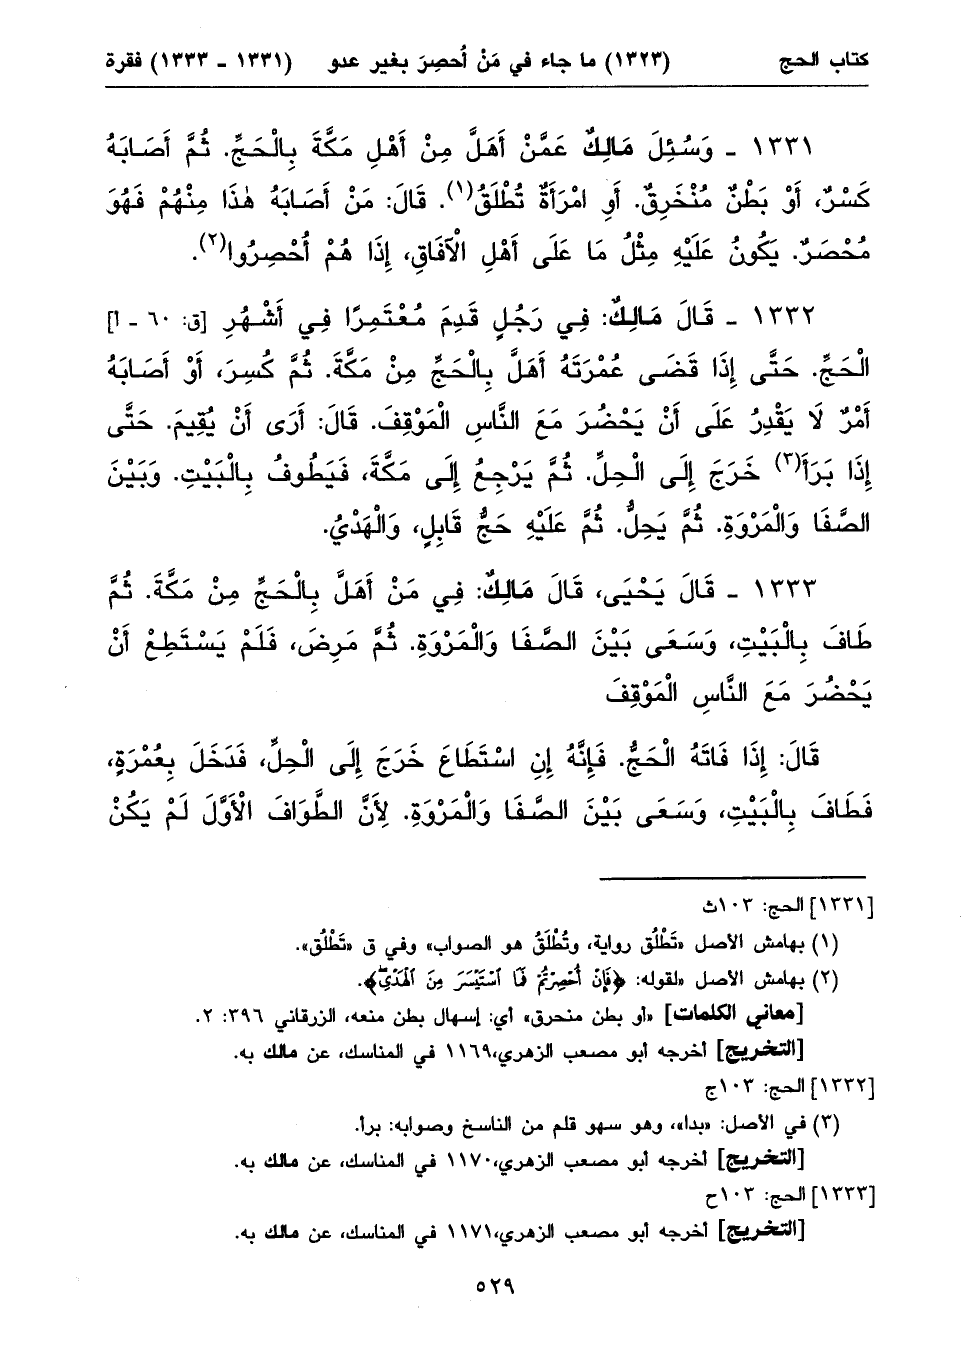 كتاب الحج (١٣٢٣) ما جاء في مَنْ أُحصِرَ بغير عدو (١٣٣١ - ١٣٣٣) فقرة
١٣٣١ - وَسُئِلَ مَالِكٌ عَمَّنْ أَهَلَّ مِنْ أَهْلِ مَكَّةَ بِالْحَجِّ. ثُمَّ أَصَابَهُ
كَسْرٌ، أَوْ بَطْنٌ مُنْخَرِقٌ. أَوِ امْرَأَةٌ تُطْلَقُ(١). قَالَ: مَنْ أَصَابَهُ هٰذَا مِنْهُمْ فَهُوَ
مُحْصَرٌ. يَكُونُ عَلَيْهِ مِثْلُ مَا عَلَى أَهْلِ الْآفَاقِ، إِذَا هُمْ أُحْصِرُوا(٢).
١٣٣٢ - قَالَ مَالِكٌ: فِي رَجُلٍ قَدِمَ مُعْتَمِرًا فِي أَشْهُرِ [ق: ٦٠ - ا]
الْحَجِّ. حَتَّى إِذَا قَضَى عُمْرَتَهُ أَهَلَّ بِالْحَجِّ مِنْ مَكَّةَ. ثُمَّ كُسِرَ، أَوْ أَصَابَهُ
أَمْرٌ لَا يَقْدِرُ عَلَى أَنْ يَحْضُرَ مَعَ النَّاسِ الْمَوْقِفَ. قَالَ: أَرَى أَنْ يُقِيمَ. حَتَّى
إِذَا بَرَأَ(٣) خَرَجَ إِلَى الْحِلِّ. ثُمَّ يَرْجِعُ إِلَى مَكَّةَ، فَيَطُوفُ بِالْبَيْتِ. وَبَيْنَ
الصَّفَا وَالْمَرْوَةِ. ثُمَّ يَحِلُّ. ثُمَّ عَلَيْهِ حَجُّ قَابِلٍ، وَالْهَدْيُ.
١٣٣٣ - قَالَ يَحْيَى، قَالَ مَالِكٌ: فِي مَنْ أَهَلَّ بِالْحَجِّ مِنْ مَكَّةَ. ثُمَّ
طَافَ بِالْبَيْتِ، وَسَعَى بَيْنَ الصَّفَا وَالْمَرْوَةِ. ثُمَّ مَرِضَ، فَلَمْ يَسْتَطِعْ أَنْ
يَحْضُرَ مَعَ النَّاسِ الْمَوْقِفَ
قَالَ: إِذَا فَاتَهُ الْحَجُّ. فَإِنَّهُ إِنِ اسْتَطَاعَ خَرَجَ إِلَى الْحِلِّ، فَدَخَلَ بِعُمْرَةٍ،
فَطَافَ بِالْبَيْتِ، وَسَعَى بَيْنَ الصَّفَا وَالْمَرْوَةِ. لِأَنَّ الطَّوَافَ الْأَوَّلَ لَمْ يَكُنْ
[١٣٣١] الحج: ١٠٣ث
(١) بهامش الأصل «تَطْلُق رواية، وتُطْلَقُ هو الصواب» وفي ق «تَطْلُق».
(٢) بهامش الأصل «لقوله: ﴿فَإِنْ أُحْصِرْتُمْ فَمَا اسْتَيْسَرَ مِنَ الْهَدْيِ﴾.
[معاني الكلمات] «أو بطن منحرق» أي: إسهال بطن منعه، الزرقاني ٣٩٦: ٢.
[التخريج] أخرجه أبو مصعب الزهري،١١٦٩ في المناسك، عن مالك به.
[١٣٣٢] الحج: ١٠٣ج
(٣) في الأصل: «بدا»، وهو سهو قلم من الناسخ وصوابه: برأ.
[التخريج] أخرجه أبو مصعب الزهري،١١٧٠ في المناسك، عن مالك به.
[١٣٣٣] الحج: ١٠٣ح
[التخريج] أخرجه أبو مصعب الزهري،١١٧١ في المناسك، عن مالك به.
٥٢٩